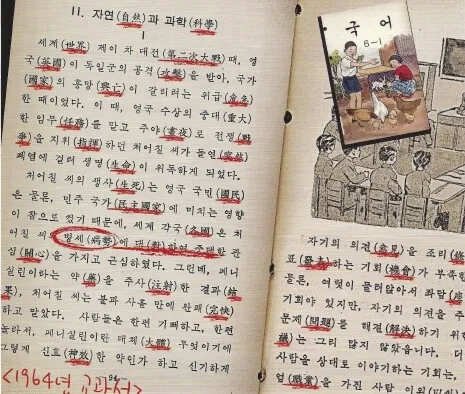 II. 자연(自然)과 과학(科學)
I
세계(世界) 제이차 대전(第二次大戰)때, 영
국(英國)이 독일군의 공격(攻擊)을 받아, 국가
(國家)의 흥망(興亡)이 갈리려는 위급(危急)
한 때이었다. 이 때, 영국 수상의 중대(重大)
한 임무(任務)를 맡고 주야(晝夜)로 전쟁(戰
爭)을 지휘(指揮)하던 처어칠 씨가 돌연(突然)
폐염에 걸려 생명(生命)이 위독하게 되었다.
처어칠 씨의 생사(生死)는 영국 국민(國民)
은 물론, 민주 국가(民主國家)에 미치는 영향
이 참으로 컸기 때문에, 세계 각국(各國)은 처
어칠 씨 병세(病勢)에 대(對)하여 중대한 관
심(關心)을 가지고 근심하였다. 그런데, 페니
실린이라는 약(藥)을 주사(注射)한 결과(結
果), 처어칠 씨는 불과 사흘 만에 완쾌(完快)
하고 말았다. 사람들은 한편 기뻐하고, 한편
놀라서, 페니실린이란 대체(大體) 무엇이기에
그렇게 신효(神效)한 약인가 하고 신기하게
94
<1964년 교과서>
국어
6-1
자기의 의견(意見)을 조리(條
표(發表)하는 기회(機會)가 부족
물론, 여럿이 둘러앉아서 좌담(座
기회야 있지만, 자기의 의견을 주
문제(問題)를 해결(解決)하기 위한
는 그리 많지 않았습니다. 더
사람을 상대로 이야기하는 기회는,
업(職業)을 가진 사람 이외(以外)